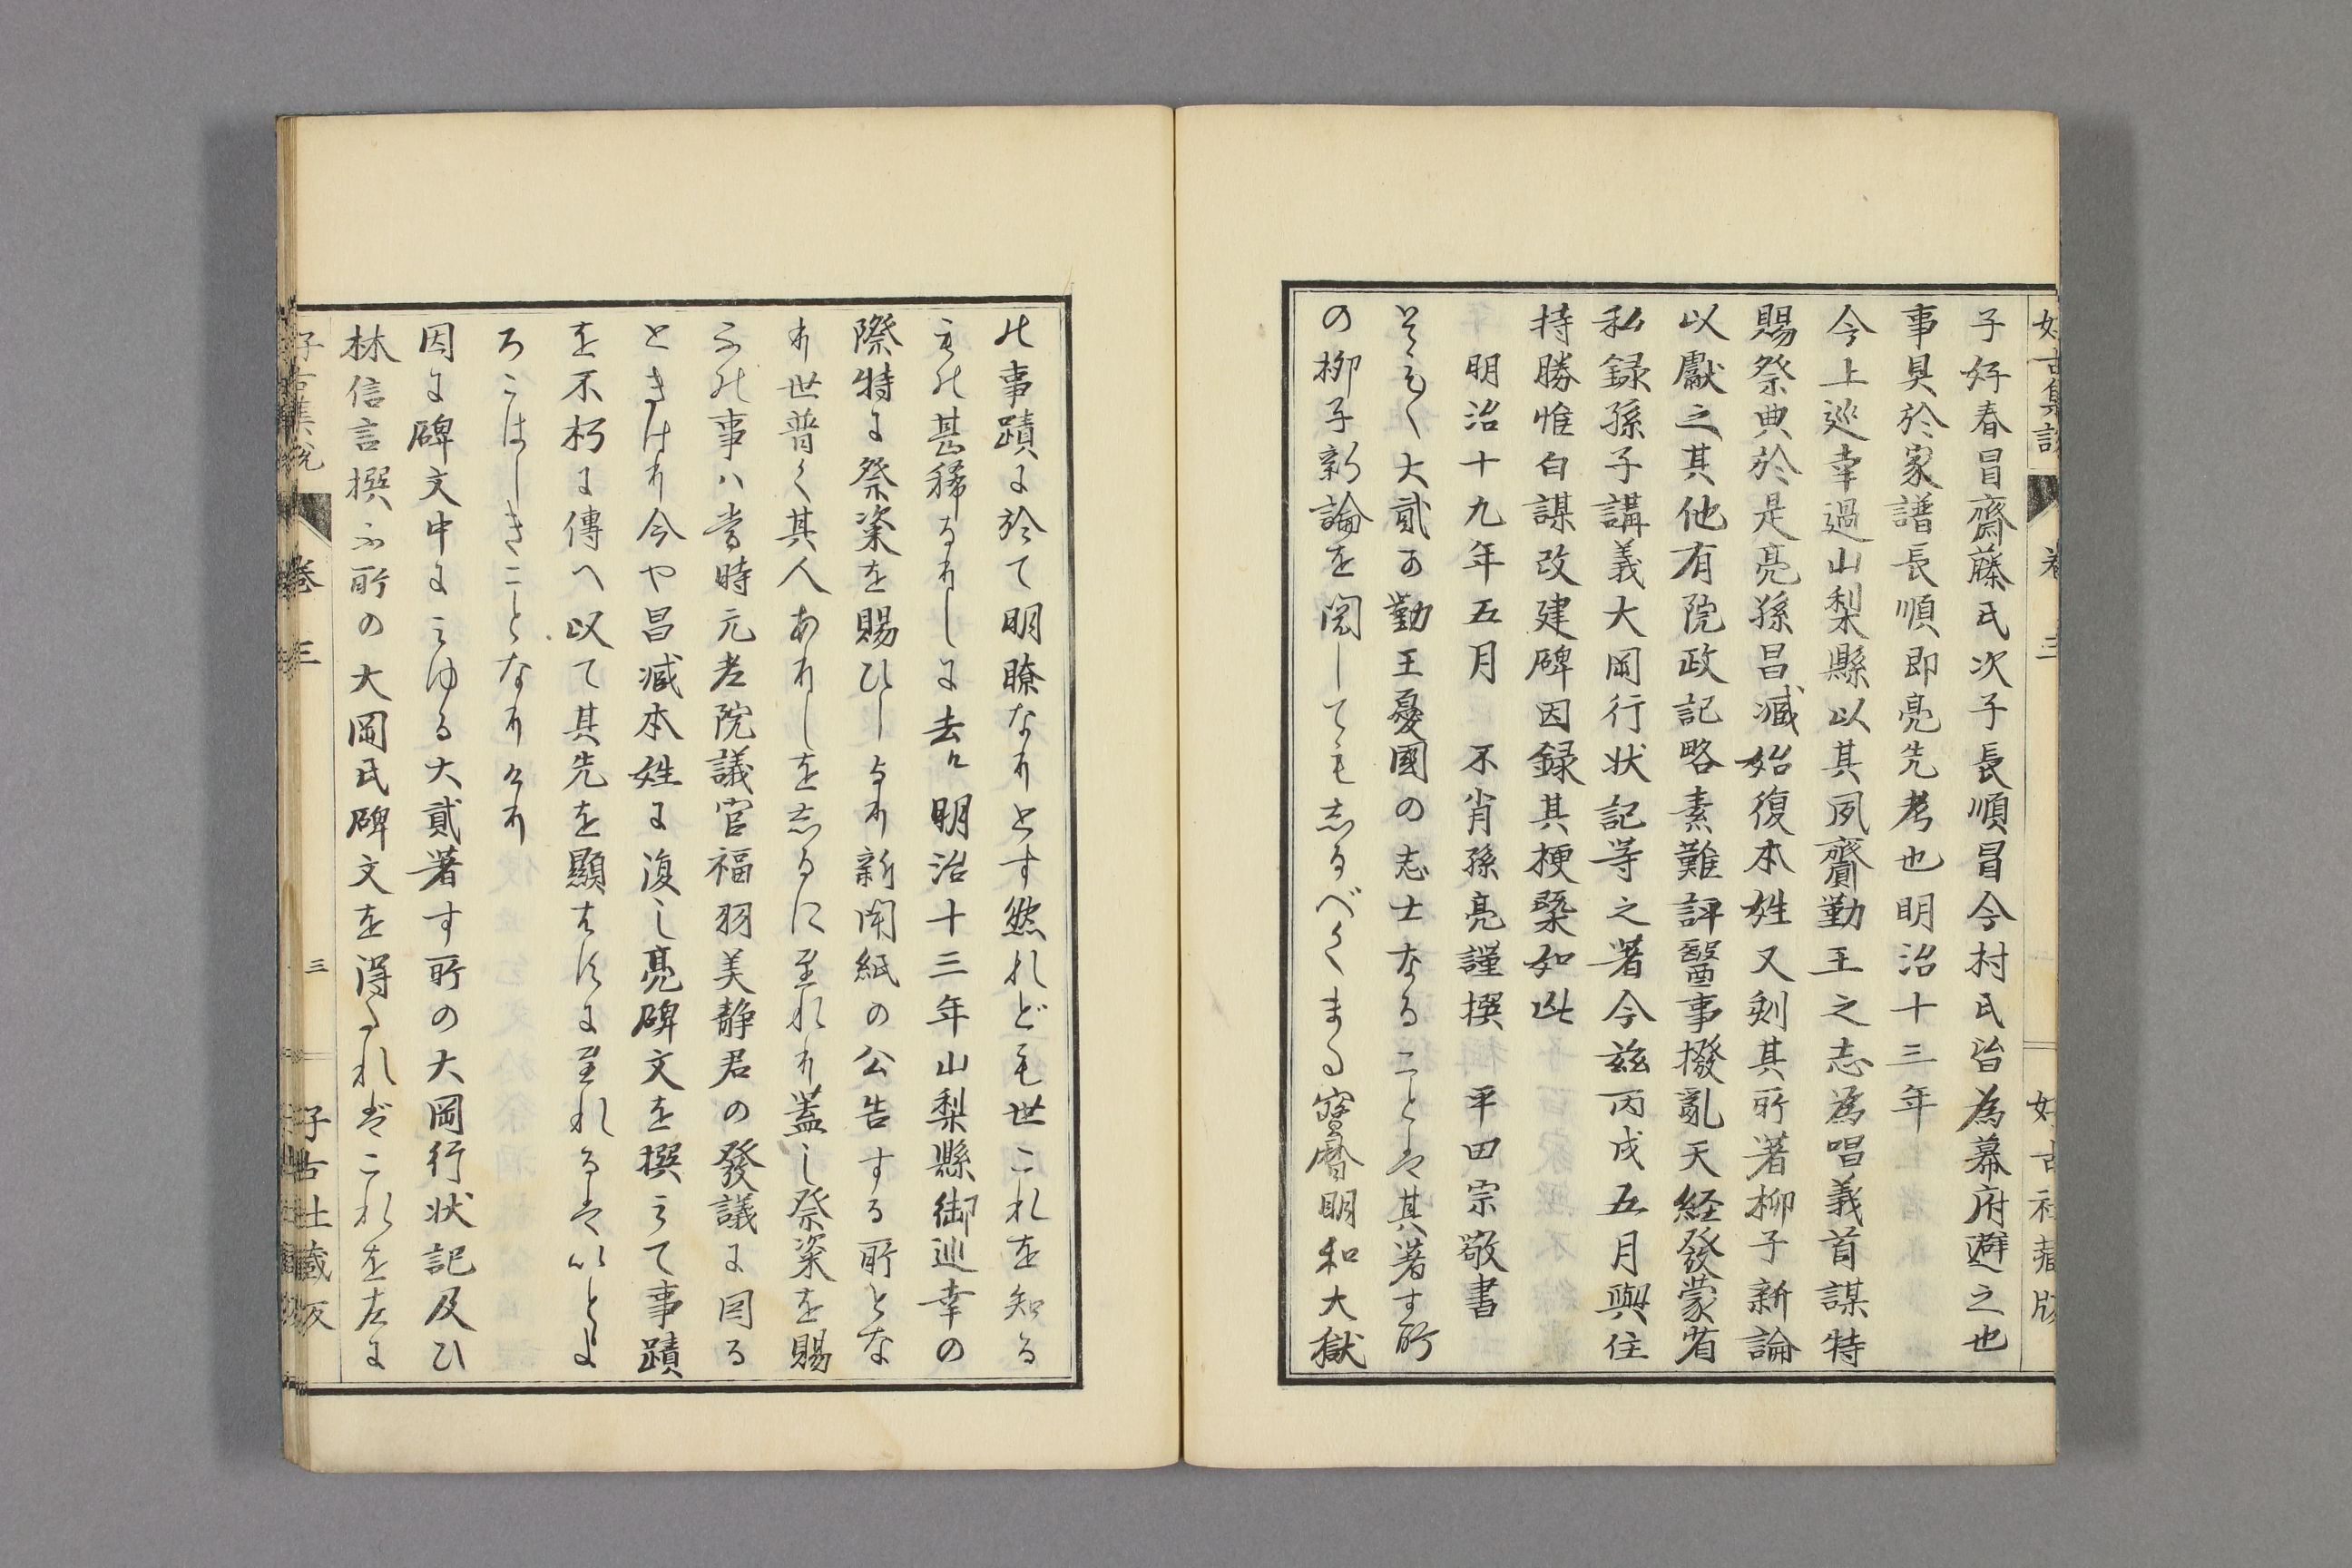 好古集説 巻三 好古社蔵版
子好春冒齋藤氏次子長順冒今村氏皆為幕府避之也
事具於家譜長順即亮先考也明治十三年
今上巡幸過山梨縣以其夙齎勤王之志為唱義首謀特
賜祭典於是亮孫昌減始復本姓又剞其所著柳子新論
以獻之其他有院政記略素難評醫事撥亂天経發蒙省
私録孫子講義大岡行状記等之著今茲丙戌五月與住
持勝惟白謀改建碑因録其梗槩如此
明治十九年五月 不肖孫亮謹撰 平田宗敬書
そも〱大貳か勤王憂國の志士なることは其著す所
の柳子新論を閲しても志るべくまる寳暦明和大獄
の事蹟に於て明瞭なりとす然れども世これを知る
もの甚稀なりしに去ル明治十三年山梨縣御巡幸の
際特に祭粢を賜ひしより新聞紙の公告する所とな
り世普く其人ありしを志るに至れり蓋し祭粢を賜
ふの事ハ當時元老院議官福羽美静君の發議に因る
ときけり今や昌減本姓に復し亮碑文を撰して事蹟
を不朽に傳へ以て其先を顯はすに至れるはいとよ
ろこはしきことなりけり
因に碑文中にみゆる大貳著す所の大岡行状記及ひ
林信言撰ふ所の大岡氏碑文を得たれバこれを左に
好古集説 巻三 三 好古社蔵版